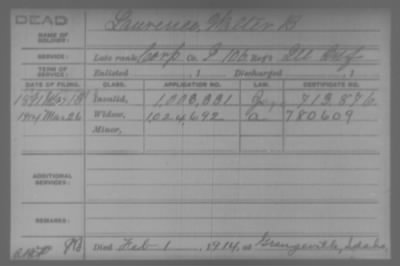 DEAD
NAME OF SOLDIER: Laurence, Walter B
SERVICE: Late rank, Corp Co. I 106 Reg't Ill Inf
TERM OF SERVICE: Enlisted , 1 Discharged , 1
DATE OF FILING. CLASS. APPLICATION NO. LAW. CERTIFICATE NO.
1891 Invalid, 1,003,331 712,876
1914 Mar 26 Widow, 1024,692 a 780609
Minor,
ADDITIONAL SERVICES:
REMARKS:
Died Feb 1, 1914, at Grangeville, Idaho